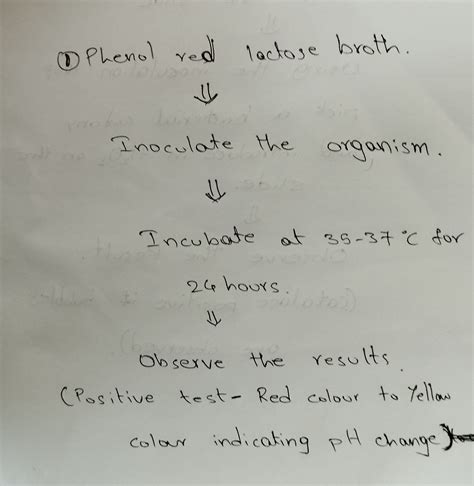 ① Phenol red lactose broth.
⇓
Inoculate the organism.
⇓
Incubate at 35-37°C for
24 hours.
⇓
Observe the results.
(Positive test- Red colour to Yellow
colour indicating pH change)